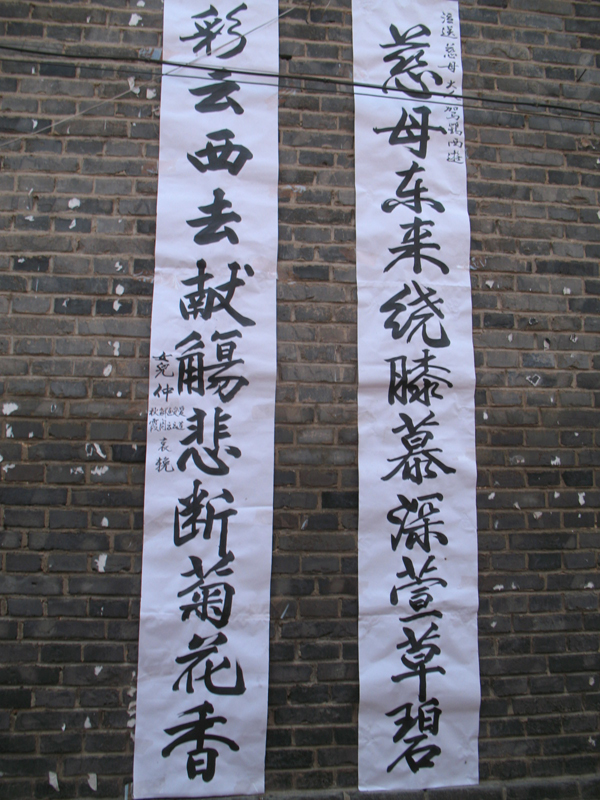 泣送慈母大人驾鹤西游
慈母东来绕膝慕深萱草碧
彩云西去献觞悲断菊花香
哀挽